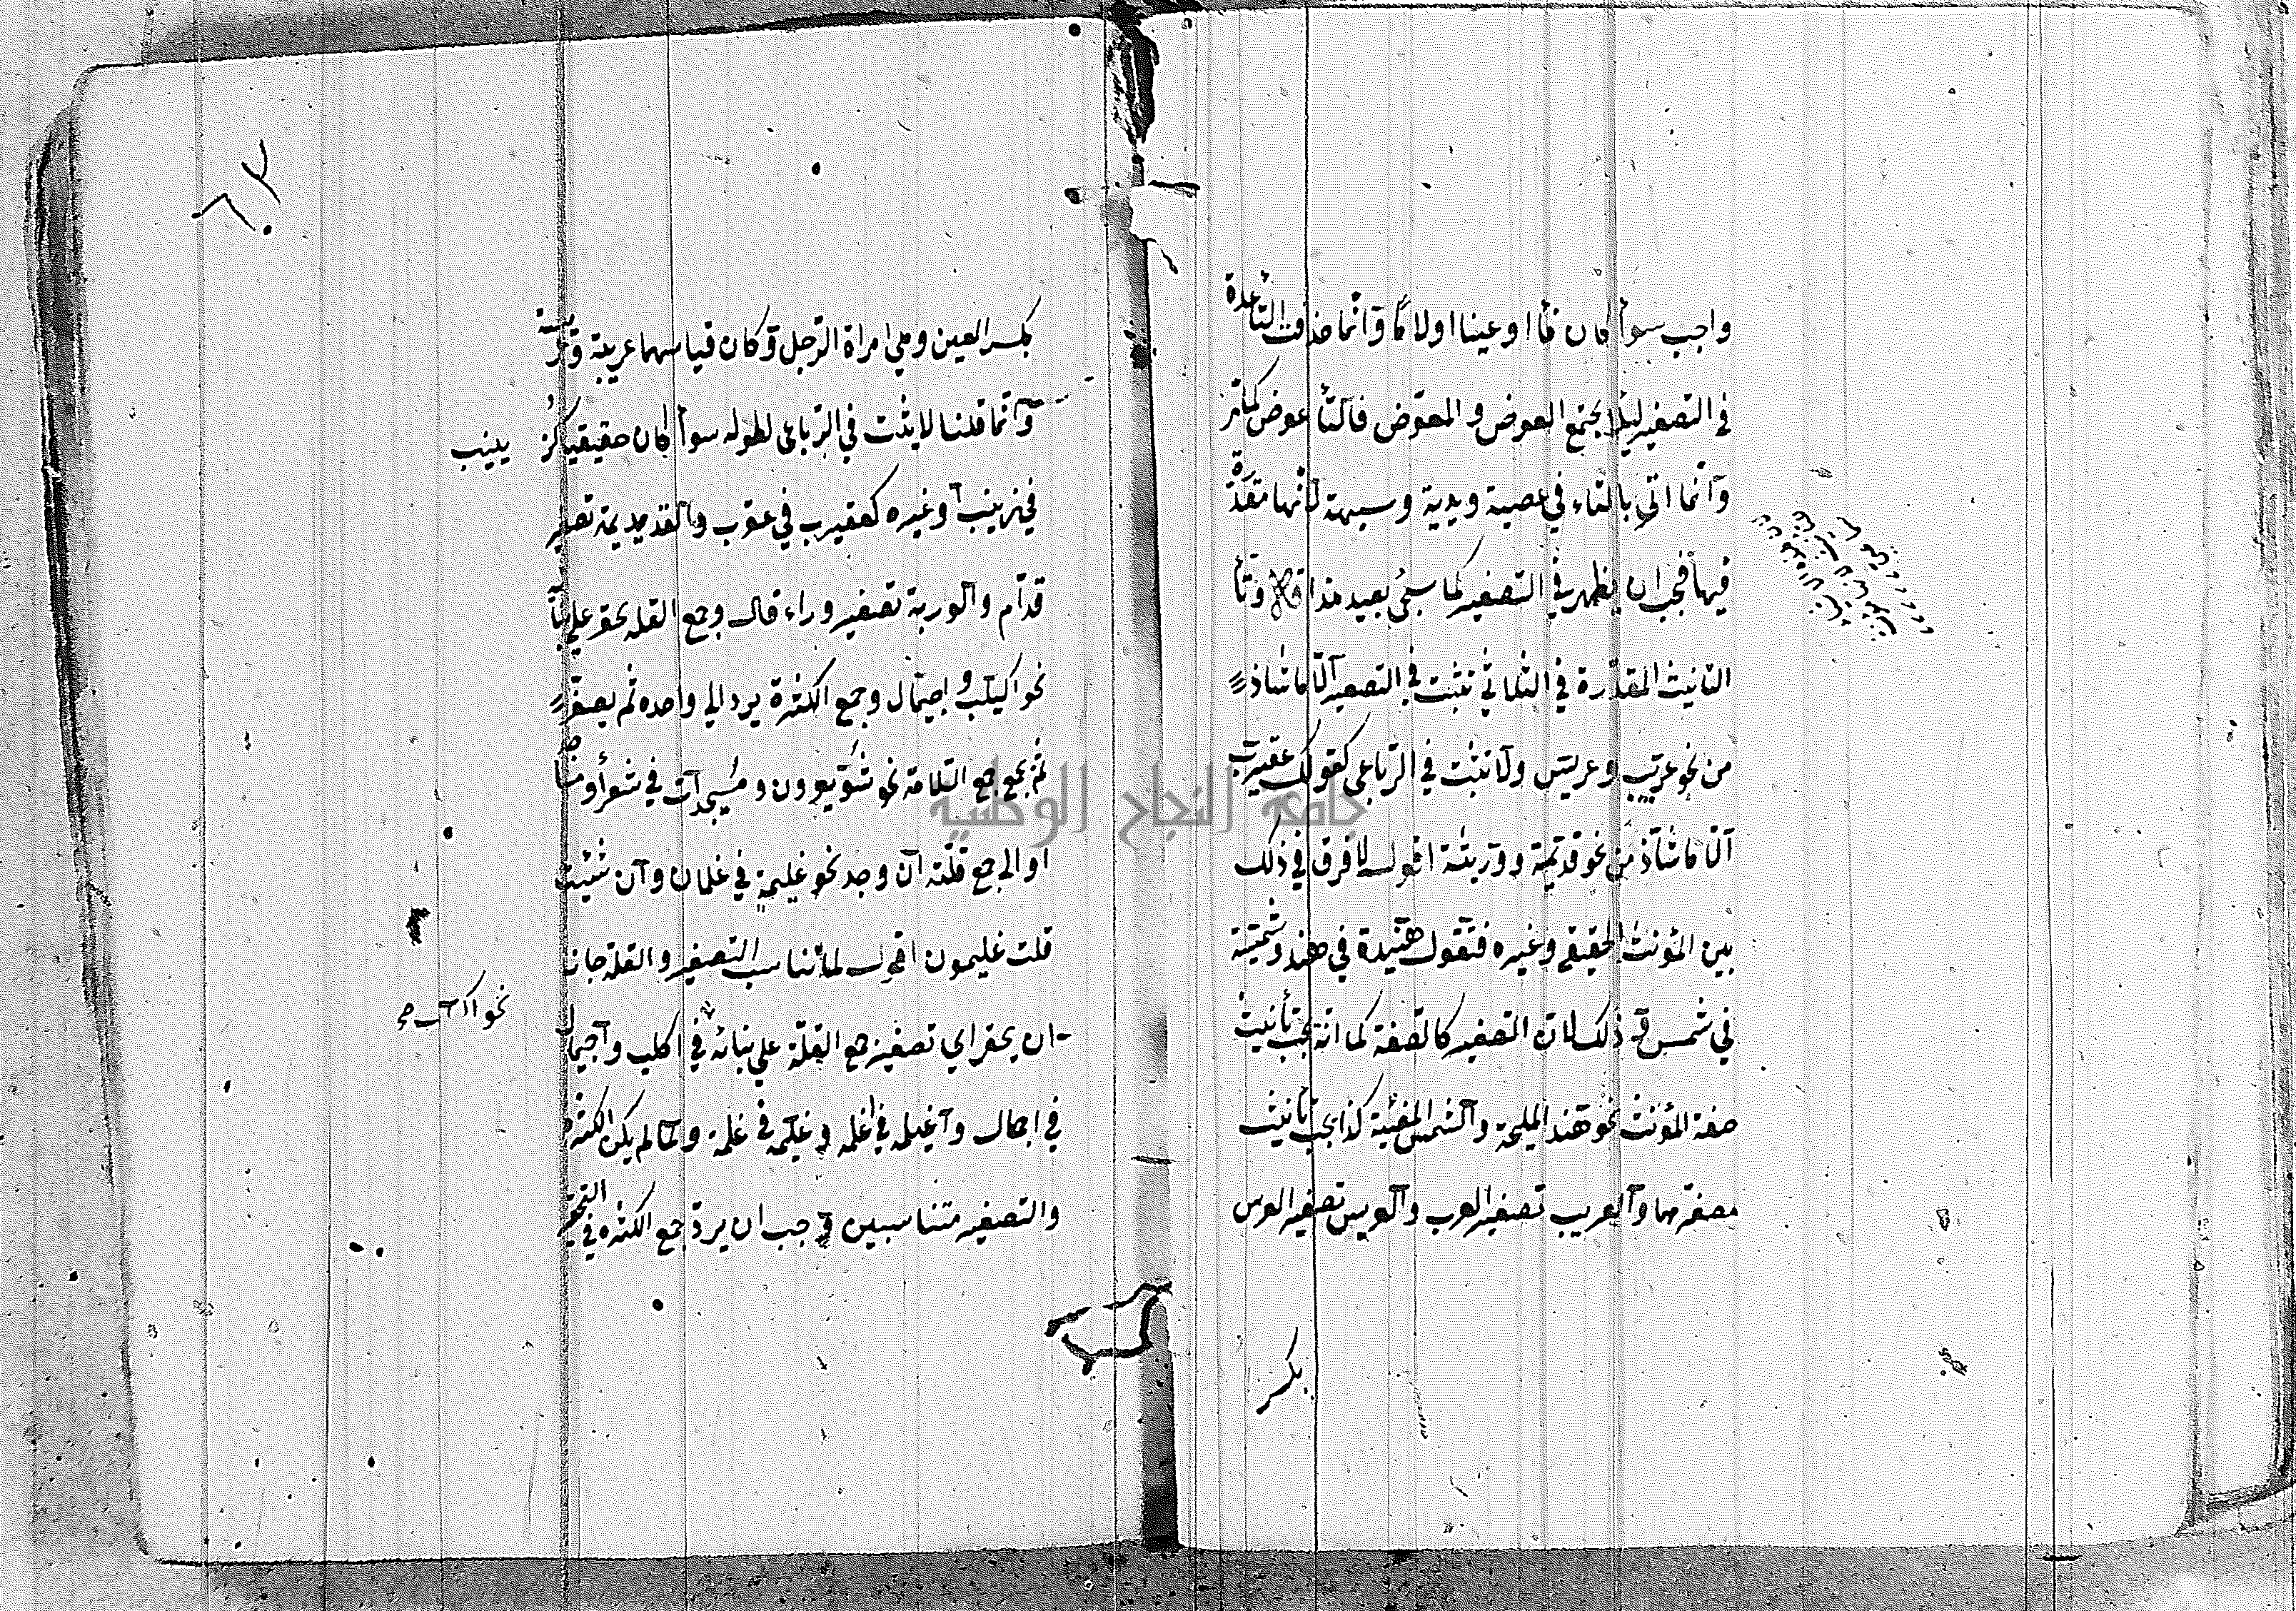 واجب سوأ كان فأ او عينا او لا مًا وآنّما حذفت التأ عدة
في التصغير ليلا يجتمع العوض والمعوّض فآلتأ عوض كما مّر
وآنّما اتي بالتاء في عصية ويدية وسيهة لأنّها مقدّرة
فيها فيجب ان يظهر في التصغير كما سيجئ بعيد هذا قال وتأ
التانيث المقدّرة في الثلاثي تثبت في التصغير آلّا ما شاذ
من نحو عريب وعريس ولا تثبت في الرّباعي كقولك عقيرب
آلّا ما شاذ من نحو قديّمة ووريئة اقول لا فرق في ذلك
بين المؤنث الحقيقي وغيره فتقول هنيدة في هند وشميسة
في شمس وذلك لان التصغير كالصفة كما انّه يجب تأنيث
صفة المؤنث نحو هند المليحة وآلشمس المضيئة كذا يجب تأنيث
مصغّرهما وآلعريب تصغير العرب وآلعريس تصغير العرس
بكسر
بكسر العين وهي امراة الرّجل وكان قياسهما عريبة وعريسة
وآنّما قلنا لا يثبت في الرّباعي لطوله سوأ كان حقيقيا كز
يينب
في زينب آوغيره كعقيرب في عقرب والقديديمة تصغير
قدّام وآلوريّة تصغير وراء قال وجمع القله يحقر علي بنائه
نحو اكيلب واجيمال وجمع الكثرة يرد الي واحده ثم يصغّر
ثم يجمع جمع السّلامة نحو شويعرون ومسيجدات في شعرأ ومساجد
او الي جمع قلّته آن وجد نحو غليمة في غلمان وآن شئت
قلت غليمون اقول لما تناسب التصغير والقلة جاز
ان يحقر اي تصغير جمع القلّة علي بنائه في اكلب وآجيمال
نحو اكلب صح
في اجمال وآغيلمه في اغلمه وغليمه في غلمة ولمّا لم يكن الكثرة
والتصغير متناسبين وجب ان يردّ جمع الكثره في التحقير
جامعة النجاح الوطنية